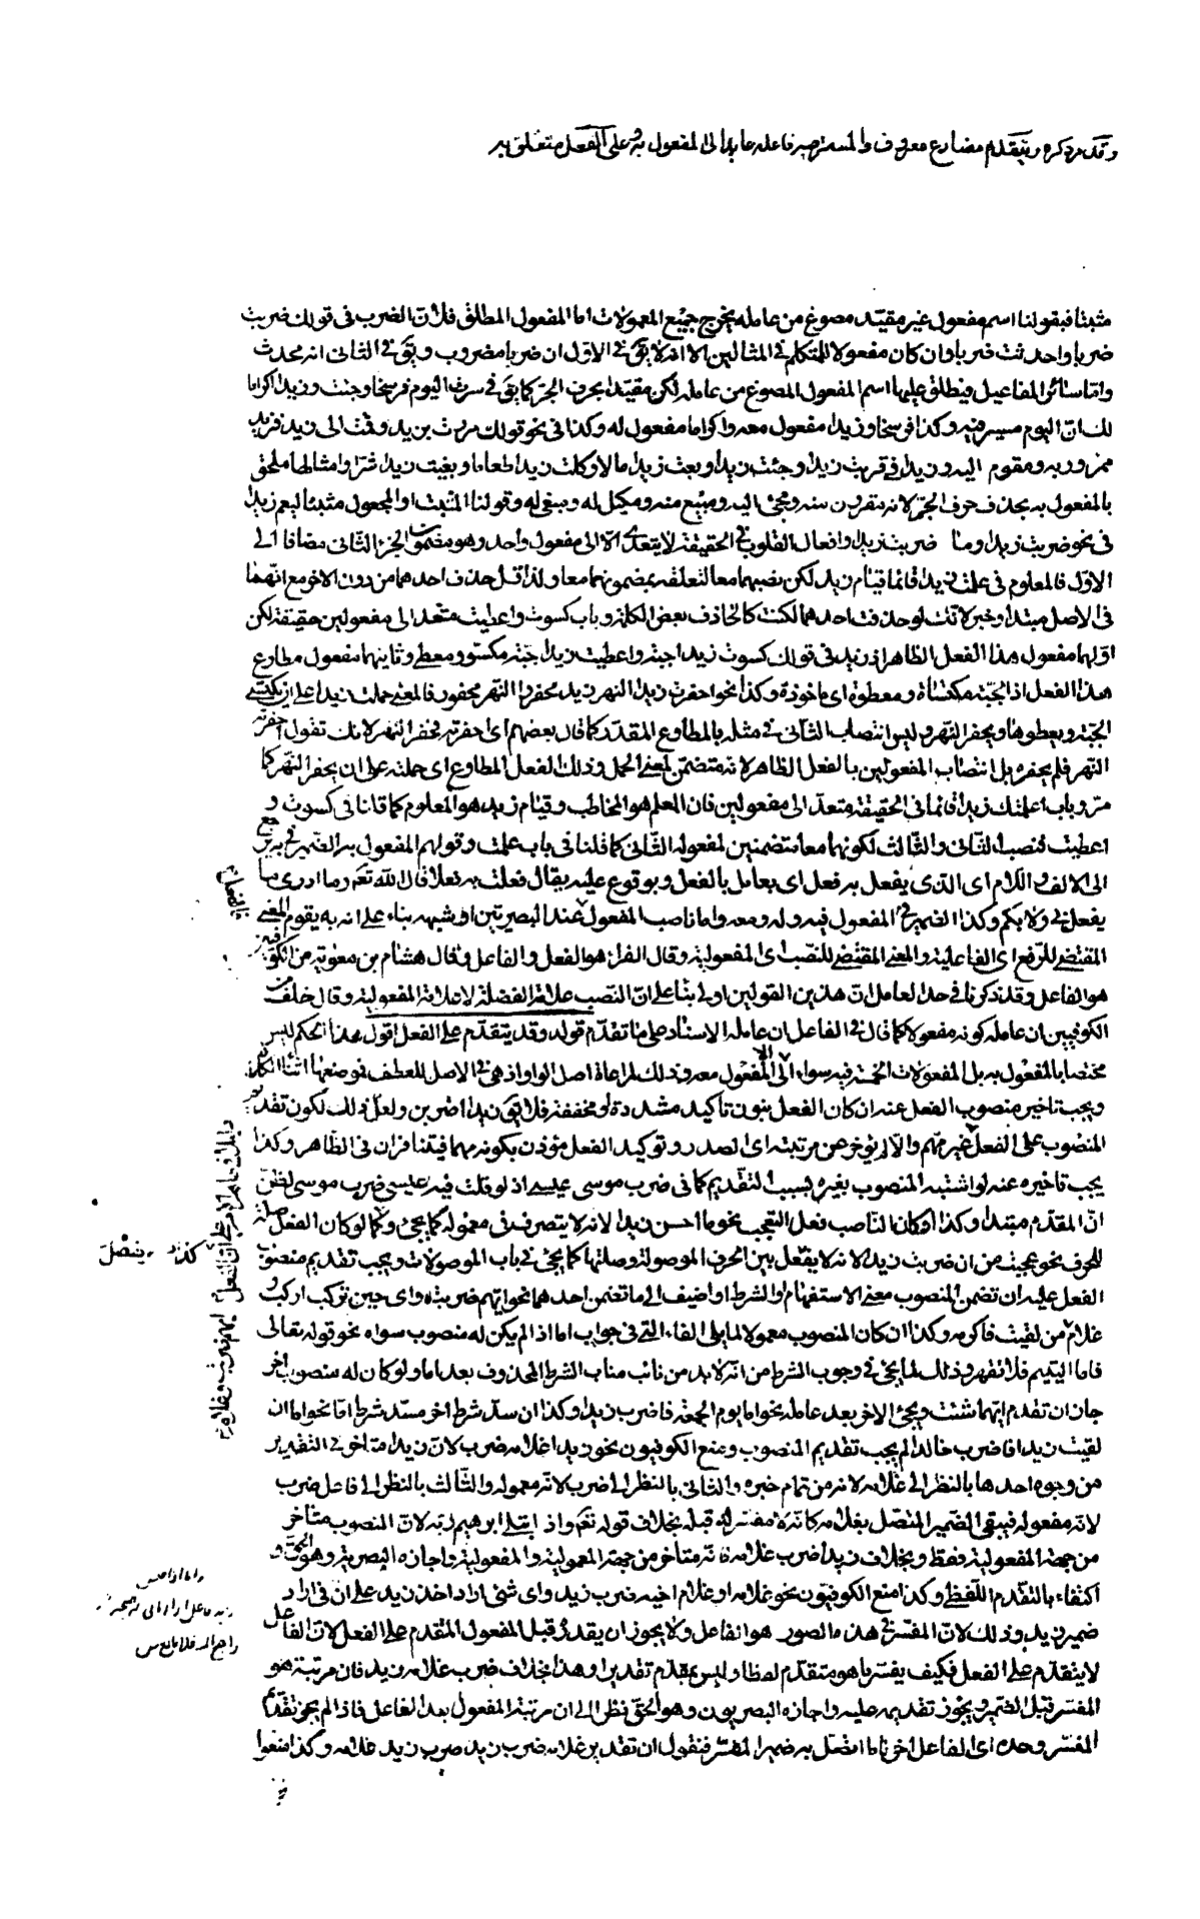 وقد مر ذكره ويتقدم مضارع معروف والمستتر فيه فاعله عايد الى المفعول به وعلى الفعل متعلق به
مثبتا فبقولنا اسم مفعول غير مقيد مصوغ من عامله يخرج جميع المعمولات اما المفعول المطلق فلان الضرب فى قولك ضربت
ضربا واحدثت ضربا وان كان مفعولا للمتكلم فى المثالين الا انه لا يق فى الاول ان ضربا مضروب ويق فى الثانى انه محدث
واما سائر المفاعيل فيطلق عليها اسم المفعول المصوغ من عامله لكن مقيدا بحرف الجر كما يق فى سرت اليوم فرسخا وجئت وزيدا اكراما
لك ان اليوم مسير فيه وكذا فرسخا وزيدا مفعول معه واكراما مفعول له وكذا فى نحو قولك مررت بزيد وقمت الى زيد فزيد
ممرور به ومقوم اليه وزيدا فى قربت زيدا وجئت زيدا وبعت زيدا مالا وكلت زيدا طعاما وبغيت زيدا شرا وامثالها ملحق
بالمفعول به بحذف حرف الجر لانه متقرب منه ومجئ اليه ومبيع منه ومكيل له ومبغى له وقولنا المثبت او المجعول مثبتا ليعم زيدا
فى نحو ضربت زيدا وما ضربت زيدا وافعال القلوب فى الحقيقة لا يتعدى الا الى مفعول واحد وهو مضمون الجزء الثانى مضافا الى
الاول فالمعلوم فى علمت زيدا قائما قيام زيد لكن نصبهما معا لتعلقه بمضمونهما معا ولذا قل حذف احدهما من دون الاخر مع انهما
فى الاصل مبتدا وخبر لانك لو حذفت احدهما لكنت كالحاذف بعض الكلمة وباب كسوت واعطيت متعد الى مفعولين حقيقة لكن
اولهما مفعول هذا الفعل الظاهر اذ زيد فى قولك كسوت زيدا جبة واعطيت زيدا جبة مكسو ومعطى وثانيهما مفعول مطاوع
هذا الفعل اذ الجبة مكتساة ومعطوة اى ماخوذة وكذا نحو احفرت زيدا النهر زيد محفر والنهر محفور فالمعنى حملت زيدا على ان يكتسى
الجبة ويعطوها ويحفر النهر وليس انتصاب الثانى فى مثله بالمطاوع المقدر كما قال بعضهم اى احفرته فحفر النهر لانك تقول احفرته
النهر فلم يحفره بل انتصاب المفعولين بالفعل الظاهر لانه متضمن لمعنى الحمل وذلك الفعل المطاوع اى حملته على ان يحفر النهر كما
مر وباب اعلمتك زيدا قائما فى الحقيقة متعد الى مفعولين فان المعلم هو المخاطب وقيام زيد هو المعلوم كما قلنا فى كسوت و
اعطيت فنصب الثانى والثالث لكونهما معا متضمنين لمفعوله الثانى كما قلنا فى باب علمت وقولهم المفعول به الضمير فى به يرجع
الى الالف واللام اى الذى يفعل به فعل اى يعامل بالفعل وبوقوع عليه يقال فعلت به فعلا قال الله تعم وما ادرى ما
يفعل بى ولا بكم وكذا الضمير فى المفعول فيه وله ومعه واما ناصب المفعول عند البصريين او شبهه بناء على انه به يقوم المعنى
المقتضى للرفع اى الفاعلية والمعنى المقتضى للنصب اى المفعولية وقال الفراء هو الفعل والفاعل وقال هشام بن معوية من الكوفيين
هو الفاعل وقد ذكرنا فى حد العامل ان هذين القولين اولى بناء على ان النصب علامة الفضلة لا علامة المفعولية وقال خلف من
الكوفيين ان عامله كونه مفعولا كما قال فى الفاعل ان عامله الاسناد على ما تقدم قوله وقد يتقدم على الفعل اقول هذا الحكم ليس
مختصا بالمفعول به بل المفعولات الخمسة فيه سواء الا المفعول معه وذلك لمراعاة اصل الواو اذ هى فى الاصل للعطف فموضعها اثناء الكلام
ويجب تاخير منصوب الفعل عنه ان كان الفعل بنون تاكيد مشددة او مخففة فلا يق زيدا اضربن ولعل ذلك لكون تقديم
المنصوب على الفعل غير مهم والا لم يؤخر عن مرتبته اى الصدر وتوكيد الفعل مؤذن بكونه مهما فيتنافران فى الظاهر وكذا
يجب تاخيره عنه لو اشتبه المنصوب بغيره بسبب التقديم كما فى ضرب موسى عيسى اذ لو قلت فيه عيسى ضرب موسى لظن
ان المقدم مبتدا وكذا لو كان الناصب فعل التعجب نحو ما احسن زيدا لانه لا يتصرف فى معموله كما يجئ وكما لو كان الفعل صلة
للحرف نحو عجبت من ان ضربت زيدا لانه لا يفصل بين الحرف الموصولة وصلتها كما يجئ فى باب الموصولات ويجب تقديم منصوب
الفعل عليه ان تضمن المنصوب معنى الاستفهام والشرط او اضيف الى ما تضمن احدهما نحو ايهم ضربت واى حين تركب اركب و
غلام من لقيت فاكرمه وكذا ان كان المنصوب معمولا لما يلى الفاء التى فى جواب اما اذ الم يكن له منصوب سواه نحو قوله تعالى
فاما اليتيم فلا تقهر وذلك لما يجئ فى وجوب الشرط من انه لا بد من نائب مناب الشرط المحذوف بعد اما ولو كان له منصوب اخر
جاز ان تقدم ايهما شئت ويجئ الاخر بعد عامله نحو اما يوم الجمعة فاضرب زيدا وكذا ان سد شرط اخر مسد شرط اما نحو اما ان
لقيت زيدا فاضرب خالدا لم يجب تقديم المنصوب ومنع الكوفيون نحو زيدا غلامه ضرب لان زيدا متاخر فى التقدير
من وجوه احدها بالنظر الى غلامه لانه من تمام خبره والثانى بالنظر الى ضرب لانه معموله والثالث بالنظر الى فاعل ضرب
لانه مفعوله فيبقى الضمير المتصل بغلامه كانه لا مفسر له قبله بخلاف قوله تعم واذ ابتلى ابرهيم ربه لان المنصوب متاخر
من جهة المفعولية فقط وبخلاف زيدا ضرب غلامه فانه متاخر من جهة المعمولية والمفعولية واجازه البصرية وهو الحق و
اكتفاء بالتقدم اللفظى وكذا منع الكوفيون نحو غلامه او غلام اخيه ضرب زيد واى شئ اراد اخذ زيد على ان فى اراد
ضمير زيد وذلك لان المفسر فى هذه الصور هو الفاعل ولا يجوز ان يقدر قبل المفعول المتقدم على الفعل لان الفاعل
لا يتقدم على الفعل فكيف يفسر ما هو متقدم لفظا وليس بمقدم تقديرا وهذا بخلاف ضرب غلامه زيد فان مرتبة هو
المفسر قبل الضمير ويجوز تقديمه عليه واجازه البصريون وهو الحق نظرا الى ان مرتبة المفعول بعد الفاعل فاذا لم يجز تقديم
المفسر وحده اى الفاعل اخرنا ما اتصل به ضمير المفسر فنقول ان تقدير غلامه ضرب زيد ضرب زيد غلامه وكذا منعوا